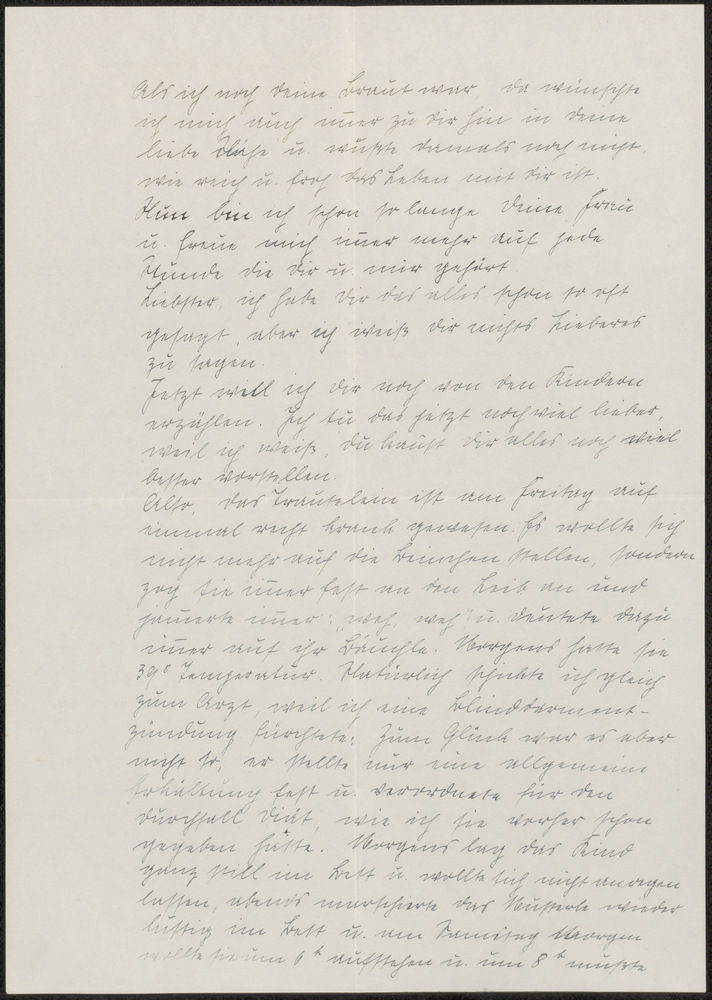 Als ich noch deine Braut war, da wünschte
ich mich auch immer zu dir hin in deine
liebe Nähe u. wußte damals noch nicht,
wie reich u. froh das Leben mit dir ist.
Nun bin ich schon so lange Deine Frau
u. freue mich immer mehr auf jede
Stunde die dir u. mir gehört
Liebster, ich habe dir das alles schon so oft
gesagt, aber ich weiß dir nichts Lieberes
zu sagen.
Jetzt will ich dir noch von den Kindern
erzählen. Ich tu das jetzt noch viel lieber,
weil ich weiß, du kannst dir alles noch viel
besser vorstellen.
Also, das Trautelein ist am Freitag auf
einmal recht krank gewesen. Es wollte sich
nicht mehr auf die Beinchen stellen, sondern
zog sie immer fest an den Leib an und
jammerte immer: „weh, weh" u. deutete dazu
immer auf ihr Bäuchle. Morgens hatte sie
39° Temperatur. Natürlich schickte ich gleich
zum Arzt, weil ich eine Blinddarment-
zündung fürchtete. Zum Glück war es aber
nicht so, er stellte nur eine allgemeine
Erkältung fest u. verordnete für den
Durchfall Diät, wie ich sie vorher schon
gegeben hatte. Morgens lag das Kind
ganz still im Bett u. wollte sich nicht anregen
lassen, abends marschierte das wieder
lustig im Bett u. am Samstag Morgen
wollte sie um 6 h aufstehen u. um 8 h mußte